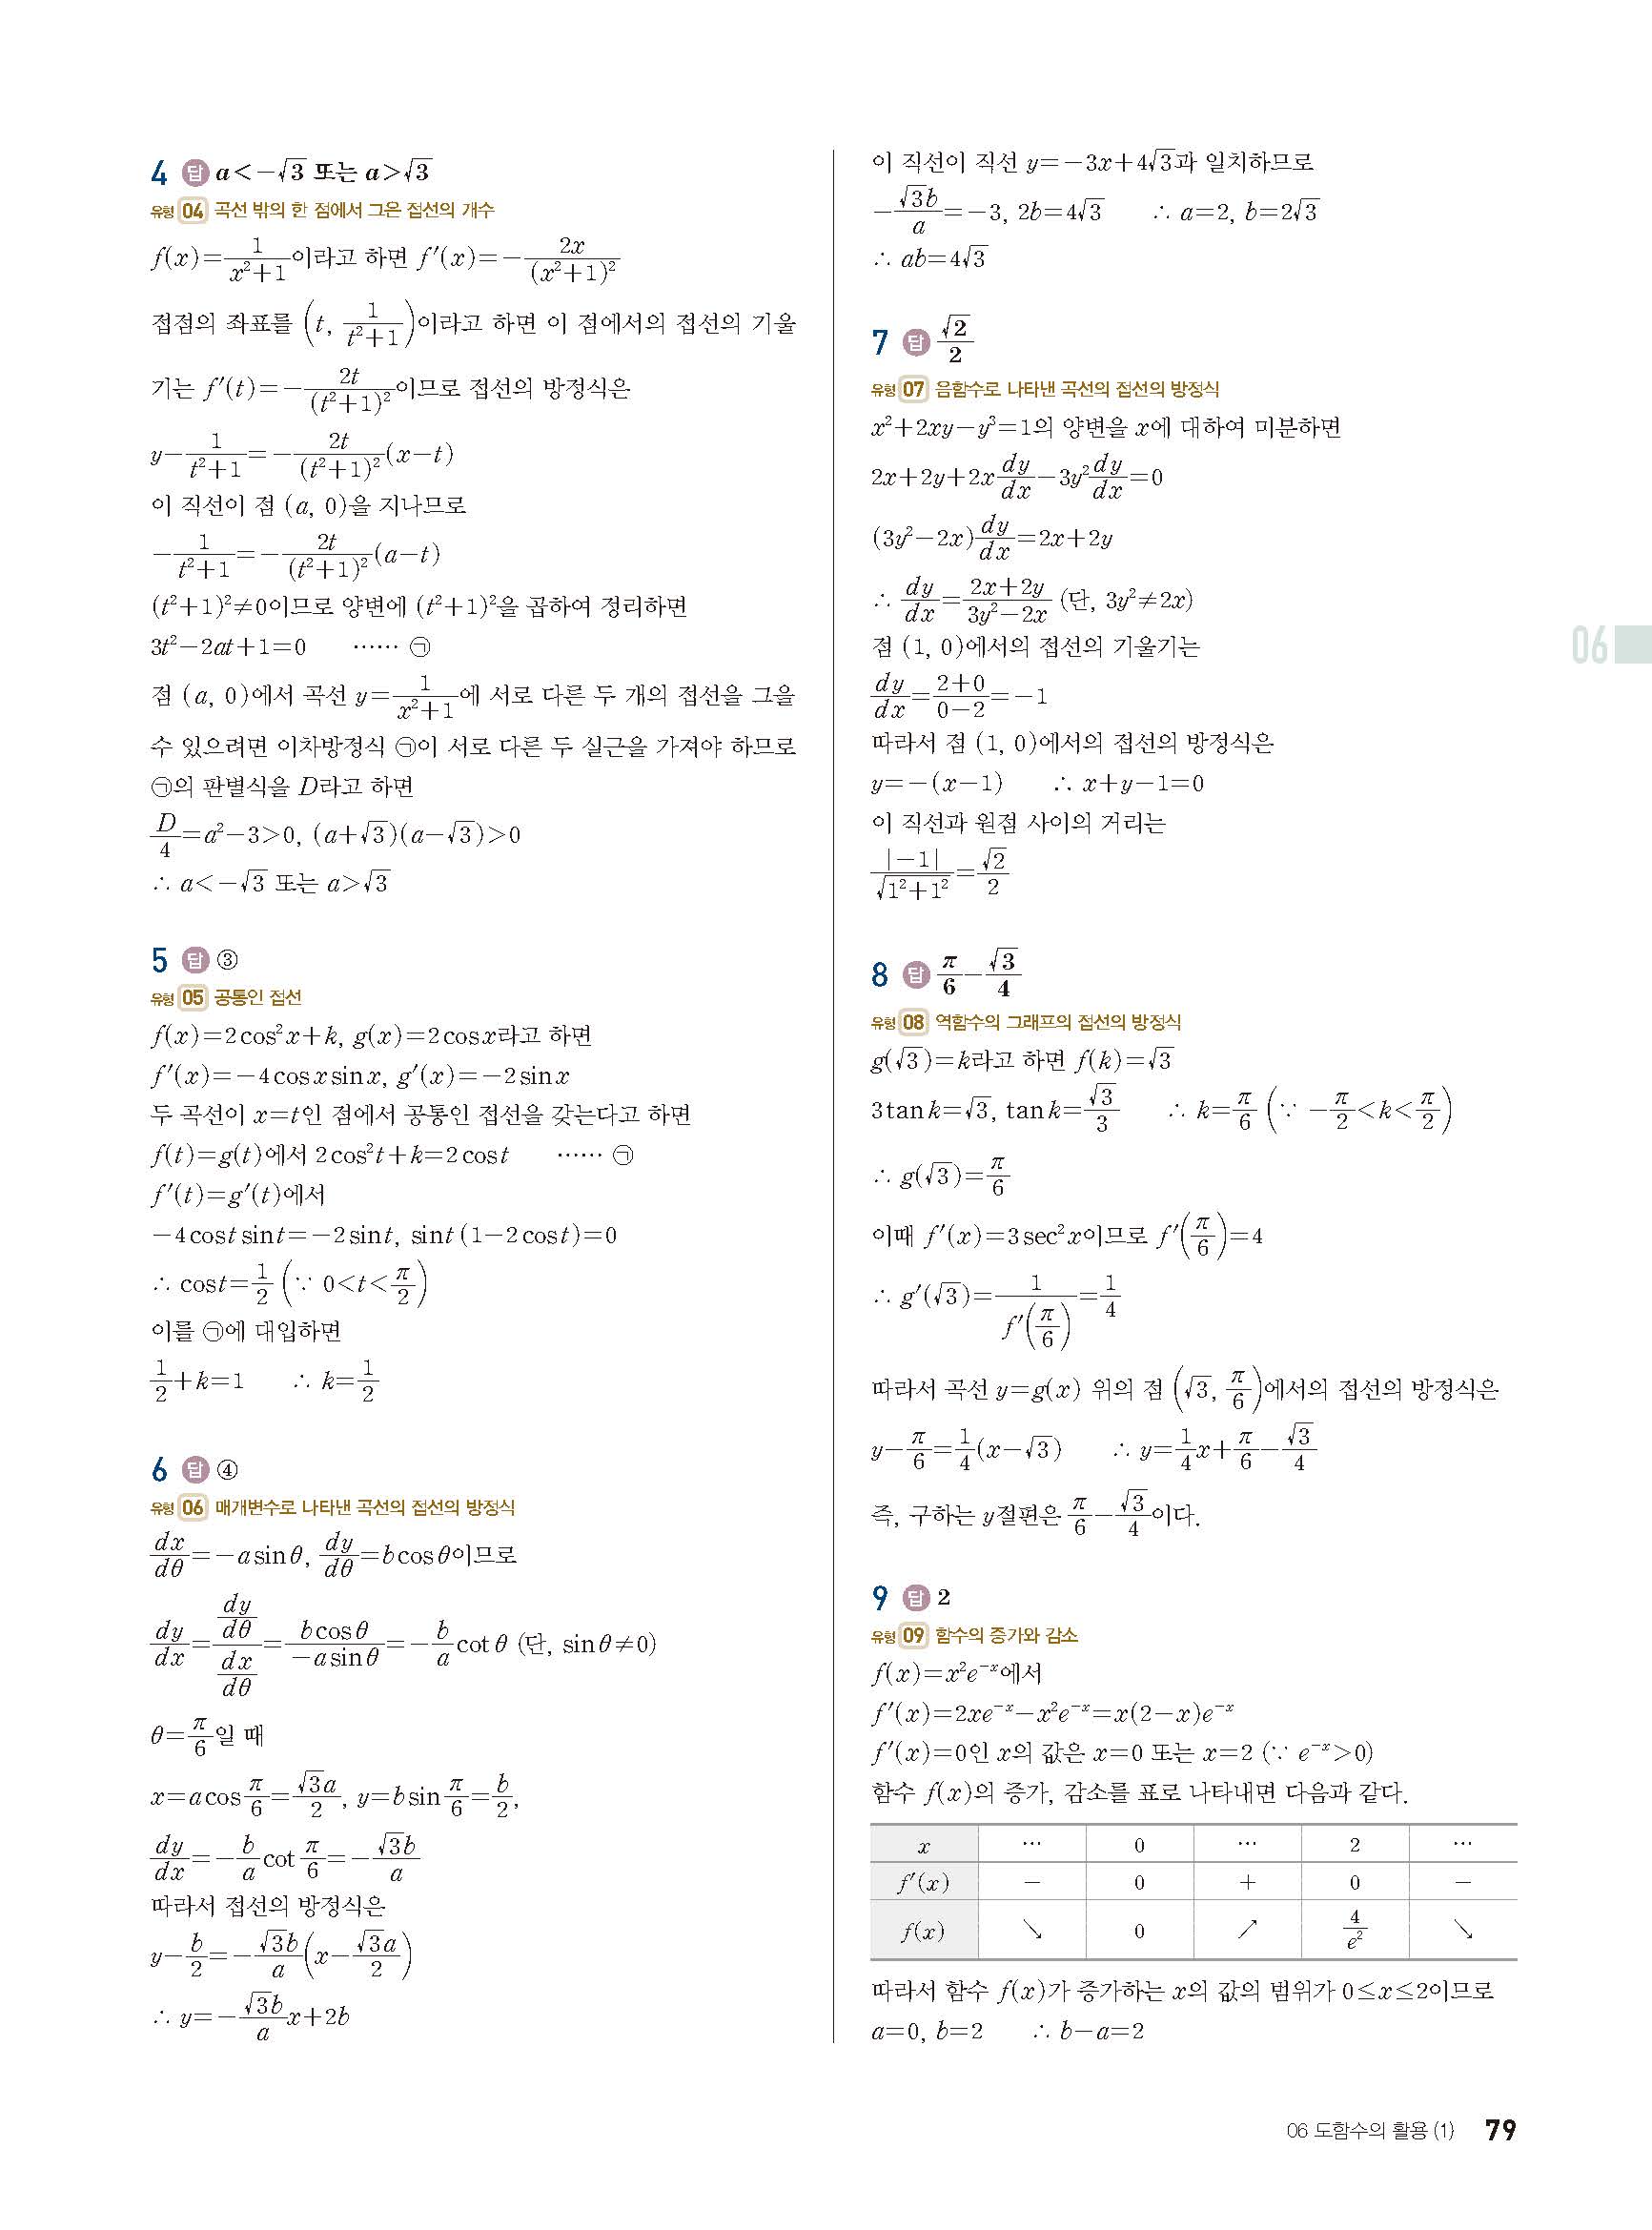 4 답 a<-√3 또는 a>√3
유형 04 곡선 밖의 한 점에서 그은 접선의 개수
f(x)=1/(x²+1)이라고 하면 f′(x)=-2x/(x²+1)²
접점의 좌표를 (t, 1/(t²+1))이라고 하면 이 점에서의 접선의 기울
기는 f′(t)=-2t/(t²+1)²이므로 접선의 방정식은
y-1/(t²+1)=-2t/(t²+1)²(x-t)
이 직선이 점 (a, 0)을 지나므로
-1/(t²+1)=-2t/(t²+1)²(a-t)
(t²+1)²≠0이므로 양변에 (t²+1)²을 곱하여 정리하면
3t²-2at+1=0 …… ㉠
점 (a, 0)에서 곡선 y=1/(x²+1)에 서로 다른 두 개의 접선을 그을
수 있으려면 이차방정식 ㉠이 서로 다른 두 실근을 가져야 하므로
㉠의 판별식을 D라고 하면
D/4=a²-3>0, (a+√3)(a-√3)>0
∴ a<-√3 또는 a>√3
5 답 ③
유형 05 공통인 접선
f(x)=2cos²x+k, g(x)=2cosx라고 하면
f′(x)=-4cosxsinx, g′(x)=-2sinx
두 곡선이 x=t인 점에서 공통인 접선을 갖는다고 하면
f(t)=g(t)에서 2cos²t+k=2cost …… ㉠
f′(t)=g′(t)에서
-4costsint=-2sint, sint(1-2cost)=0
∴ cost=1/2 (∵ 0<t<π/2)
이를 ㉠에 대입하면
1/2+k=1 ∴ k=1/2
6 답 ④
유형 06 매개변수로 나타낸 곡선의 접선의 방정식
dx/dθ=-asinθ, dy/dθ=bcosθ이므로
dy/dx=(dy/dθ)/(dx/dθ)=bcosθ/(-asinθ)=-(b/a)cotθ (단, sinθ≠0)
θ=π/6일 때
x=acos π/6=√3a/2, y=bsin π/6=b/2,
dy/dx=-(b/a)cot π/6=-√3b/a
따라서 접선의 방정식은
y-b/2=-(√3b/a)(x-√3a/2)
∴ y=-(√3b/a)x+2b
이 직선이 직선 y=-3x+4√3과 일치하므로
-√3b/a=-3, 2b=4√3 ∴ a=2, b=2√3
∴ ab=4√3
7 답 √2/2
유형 07 음함수로 나타낸 곡선의 접선의 방정식
x²+2xy-y³=1의 양변을 x에 대하여 미분하면
2x+2y+2x dy/dx-3y² dy/dx=0
(3y²-2x)dy/dx=2x+2y
∴ dy/dx=(2x+2y)/(3y²-2x) (단, 3y²≠2x)
점 (1, 0)에서의 접선의 기울기는
dy/dx=(2+0)/(0-2)=-1
따라서 점 (1, 0)에서의 접선의 방정식은
y=-(x-1) ∴ x+y-1=0
이 직선과 원점 사이의 거리는
|-1|/√(1²+1²)=√2/2
8 답 π/6-√3/4
유형 08 역함수의 그래프의 접선의 방정식
g(√3)=k라고 하면 f(k)=√3
3tank=√3, tank=√3/3 ∴ k=π/6 (∵ -π/2<k<π/2)
∴ g(√3)=π/6
이때 f′(x)=3sec²x이므로 f′(π/6)=4
∴ g′(√3)=1/f′(π/6)=1/4
따라서 곡선 y=g(x) 위의 점 (√3, π/6)에서의 접선의 방정식은
y-π/6=1/4(x-√3) ∴ y=1/4x+π/6-√3/4
즉, 구하는 y절편은 π/6-√3/4이다.
9 답 2
유형 09 함수의 증가와 감소
f(x)=x²e⁻ˣ에서
f′(x)=2xe⁻ˣ-x²e⁻ˣ=x(2-x)e⁻ˣ
f′(x)=0인 x의 값은 x=0 또는 x=2 (∵ e⁻ˣ>0)
함수 f(x)의 증가, 감소를 표로 나타내면 다음과 같다.
x … 0 … 2 …
f′(x) - 0 + 0 -
f(x) ↘ 0 ↗ 4/e² ↘
따라서 함수 f(x)가 증가하는 x의 값의 범위가 0≤x≤2이므로
a=0, b=2 ∴ b-a=2
06
06 도함수의 활용 (1) 79